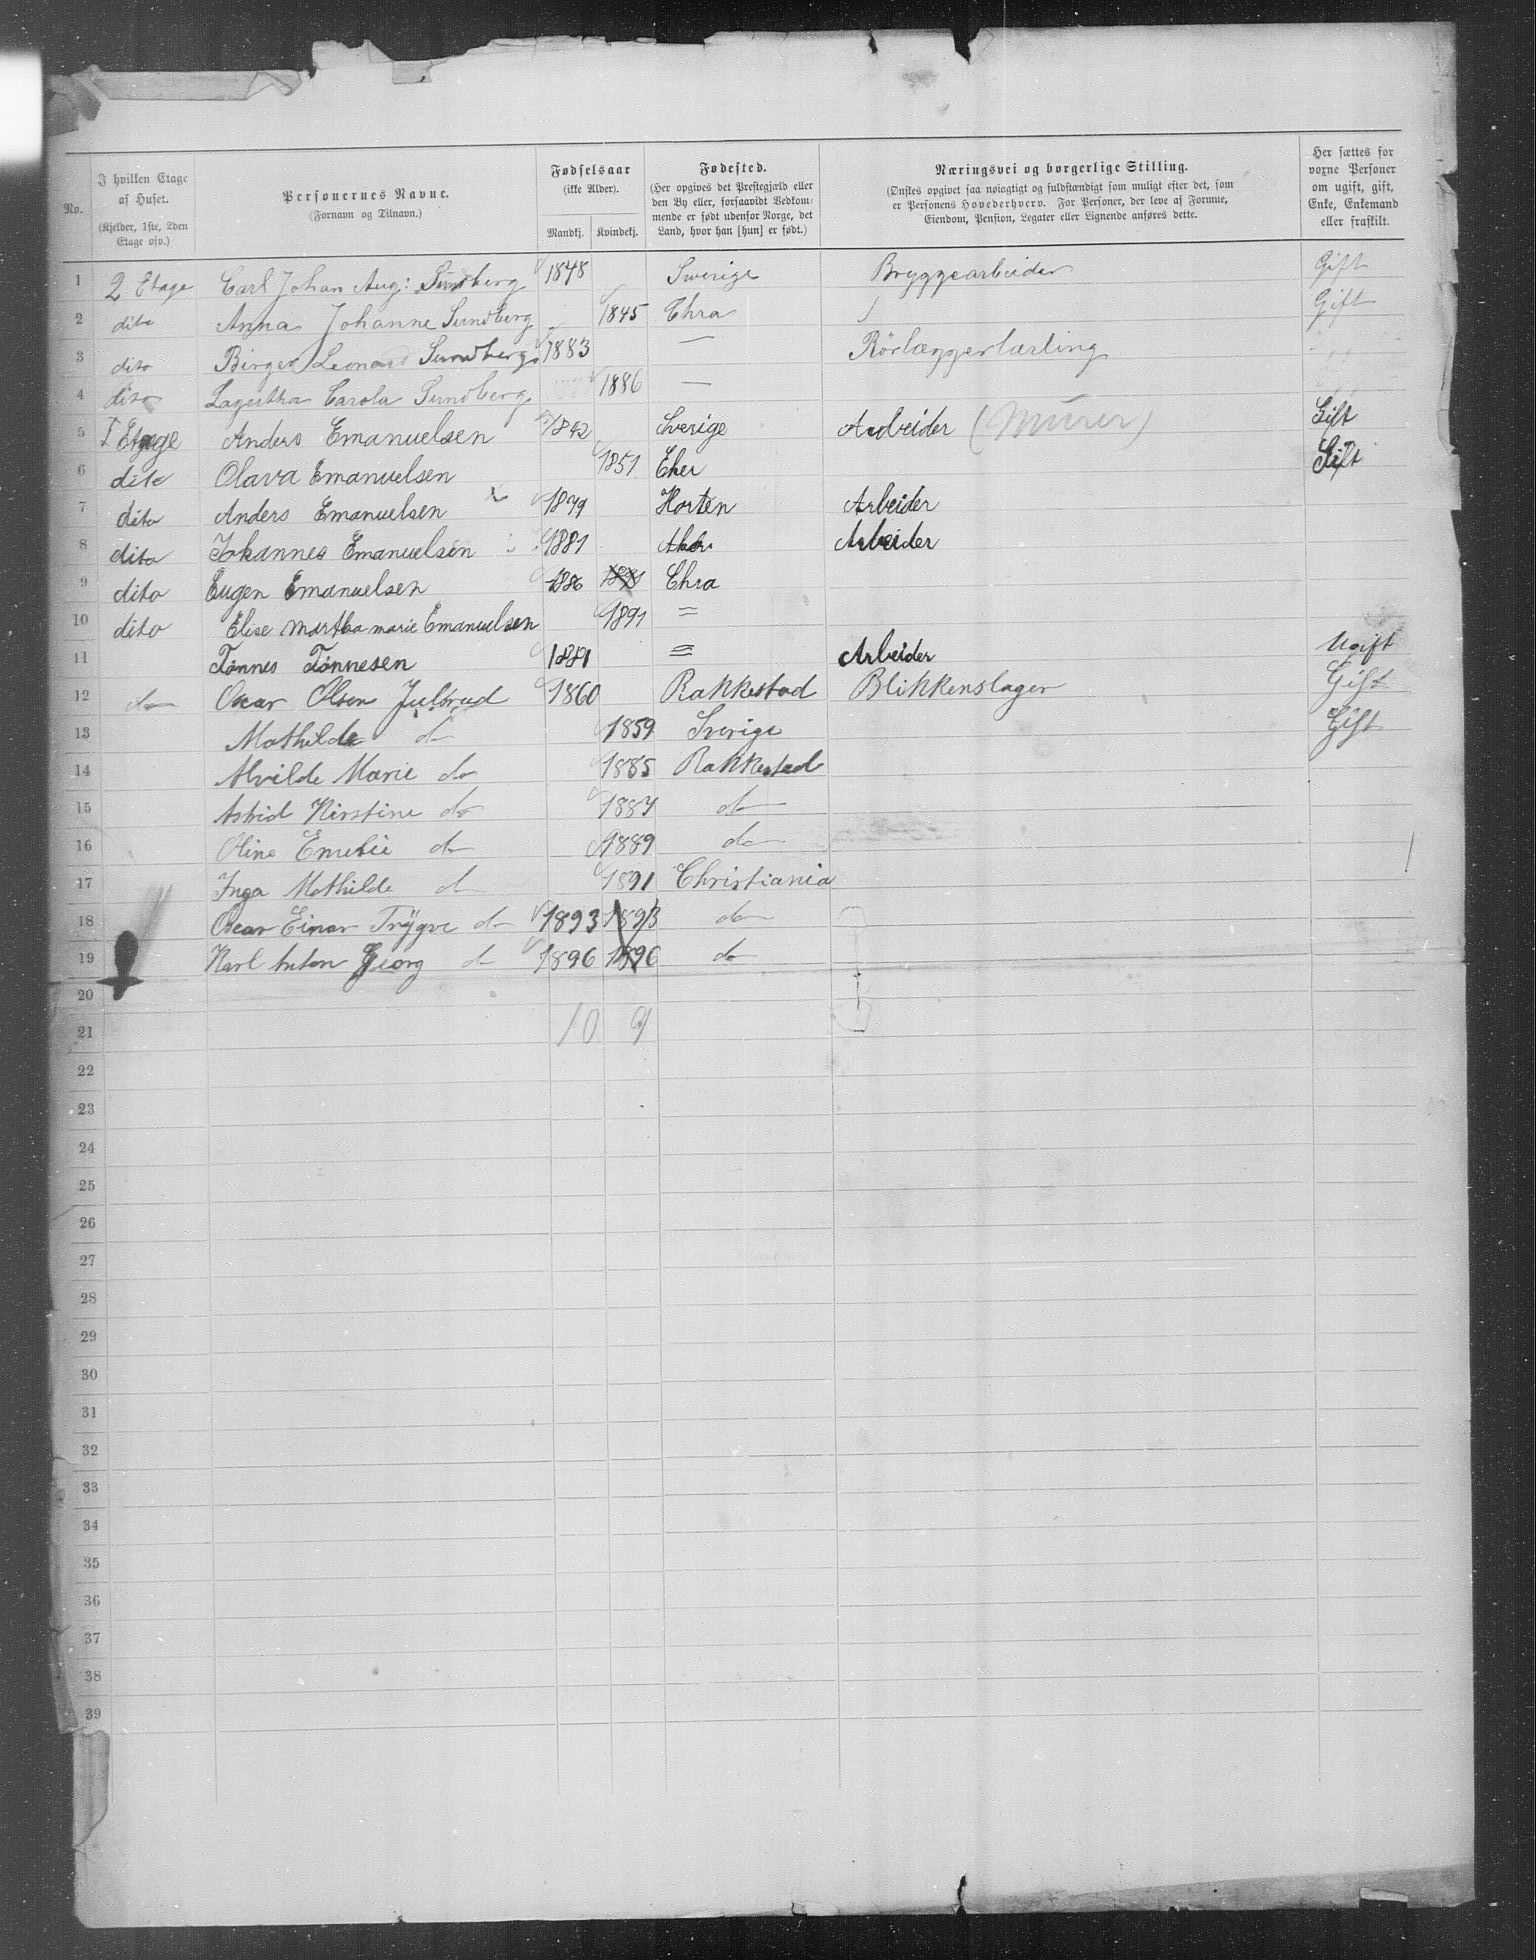 No. | I hvilken Etage af Huset. (Kjelder, 1ste, 2den Etage osv.) | Personernes Navne. (Fornavn og Tilnavn.) | Fødselsaar (ikke Alder). Mandkj. | Kvindekj. | Fødested. (Her opgives det Prestegjæld eller den By eller, forsaavidt Vedkommende er født udenfor Norge, det Land, hvor han [hun] er født.) | Næringsvei og borgerlige Stilling. (Ønskes opgivet saa nøiagtigt og fuldstændigt som muligt efter det, som er Personens Hovederhverv. For Personer, der leve af Formue, Eiendom, Pension, Legater eller Lignende anføres dette. | Her sættes for voxne Personer om ugift, gift, Enke, Enkemand eller fraskilt.
1 2 Etage Carl Johan Aug: Sundberg 1848 Sverige Bryggearbeider Gift
2 dito Anna Johanne Sundberg 1845 Chra Gift
3 dito Birger Leonard Sundberg 1883 — Rörlæggerlærling
4 dito Lagertha Carola Sundberg 1886 —
5 I Etage Anders Emanuelsen 1842 Sverige Arbeider (Murer) Gift
6 dito Olava Emanuelsen 1851 Eker Gift
7 dito Anders Emanuelsen 1879 Horten Arbeider
8 dito Johannes Emanuelsen 1881 Arbeider
9 dito Eugen Emanuelsen 1886 Chra
10 dito Elise Martha marie Emanuelsen 1891 =
11 Tønnes Tønnesen 1881 = Arbeider Ugift
12 do Oscar Olsen Julsrud 1860 Rakkestad Blikkenslager Gift
13 Mathilde do 1859 Sverige Gift
14 Alvilde Marie do 1885 Rakkestad
15 Astrid Kirstine do 1887 do
16 Oline Emelie do 1889 do
17 Inga Mathilde do 1891 Christiania
18 Oscar Einar Trygve do 1893 1893 do
19 Karl Anton Georg do 1896 1896 do
20
21 10 9
22
23
24
25
26
27
28
29
30
31
32
33
34
35
36
37
38
39